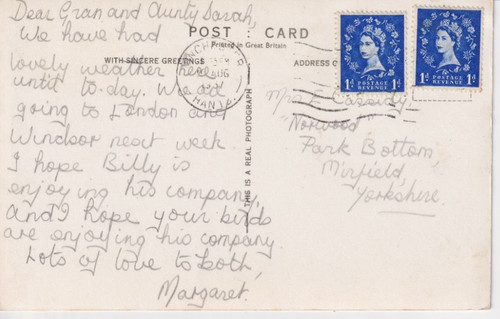 Dear Gran and Aunty Sarah,
We have had
lovely weather here
until to-day. We are
going to London and
Windsor next week
I hope Billy is
enjoying his company,
and I hope your birds
are enjoying his company
Lots of love to both,
Margaret.
POST CARD
Printed in Great Britain
WITH SINCERE GREETINGS
ADDRESS
THIS IS A REAL PHOTOGRAPH
AUG
HANTS
1d POSTAGE REVENUE 1d
1d POSTAGE REVENUE 1d
Mrs E Cassidy
"Norwood"
Park Bottom,
Mirfield,
Yorkshire.